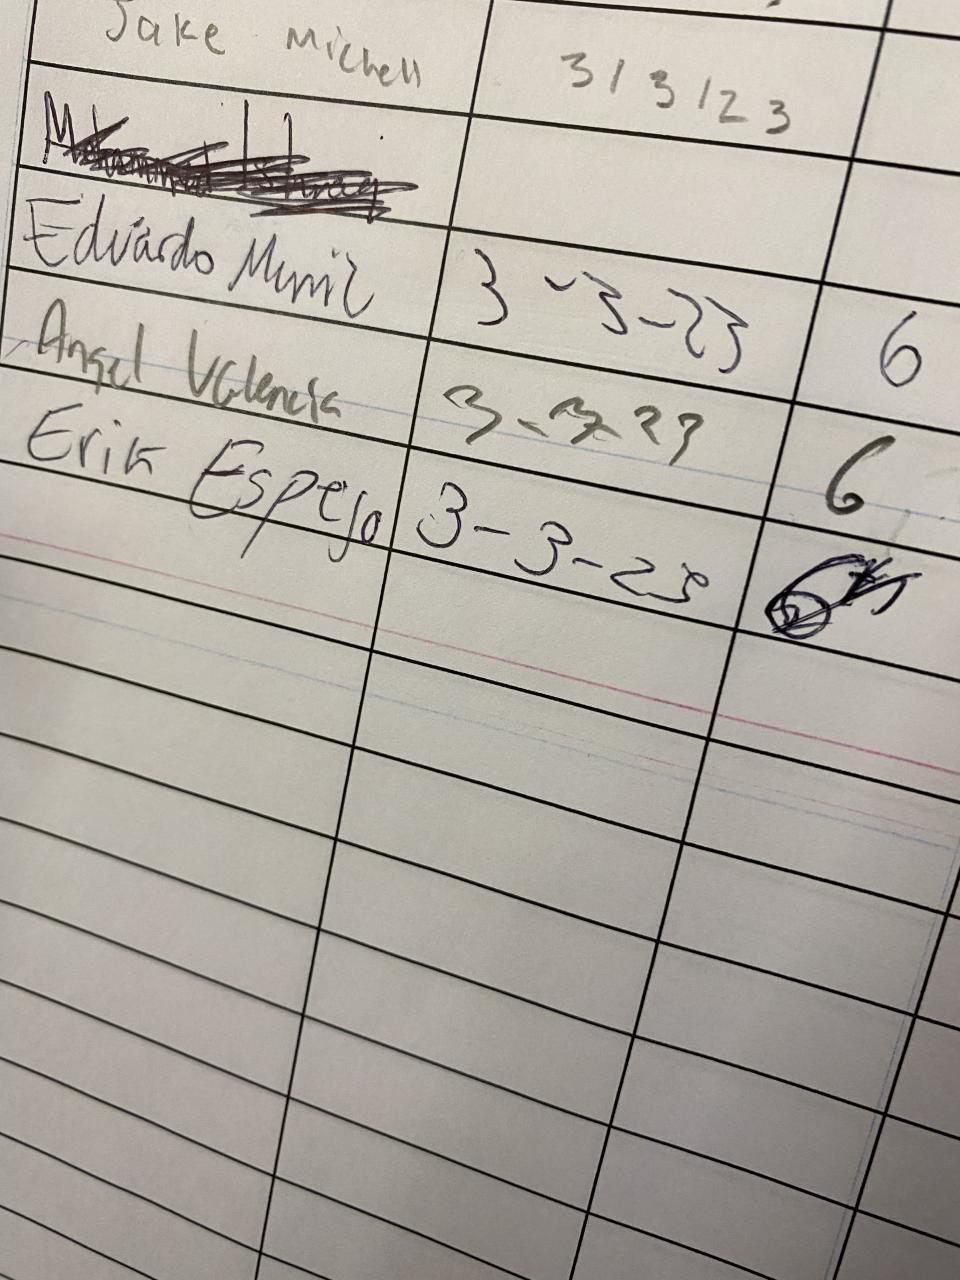 Jake Michell 3/3/23
Eduardo Muniz 3-3-23 6
Angel Valencia 3-3-23 6
Erik Espejo 3-3-23